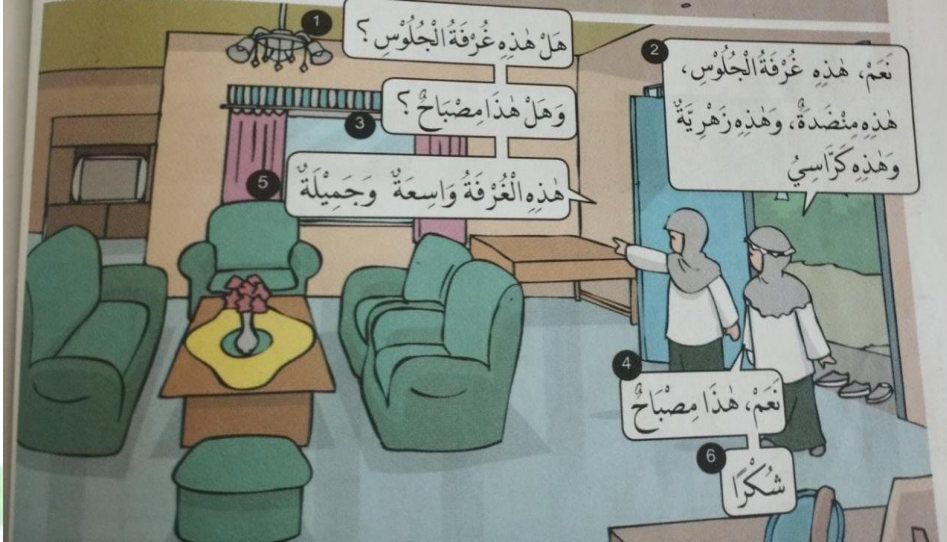 1
هَلْ هٰذِهِ غُرْفَةُ الْجُلُوْسِ؟
2
نَعَمْ، هٰذِهِ غُرْفَةُ الْجُلُوْسِ،
هٰذِهِ مِنْضَدَةٌ، وَهٰذِهِ زَهْرِيَّةٌ
وَهٰذِهِ كَرَّاسِيُ
3
وَهَلْ هٰذَا مِصْبَاحٌ؟
4
نَعَمْ، هٰذَا مِصْبَاحٌ
5
هٰذِهِ الْغُرْفَةُ وَاسِعَةٌ وَجَمِيْلَةٌ
6
شُكْرًا